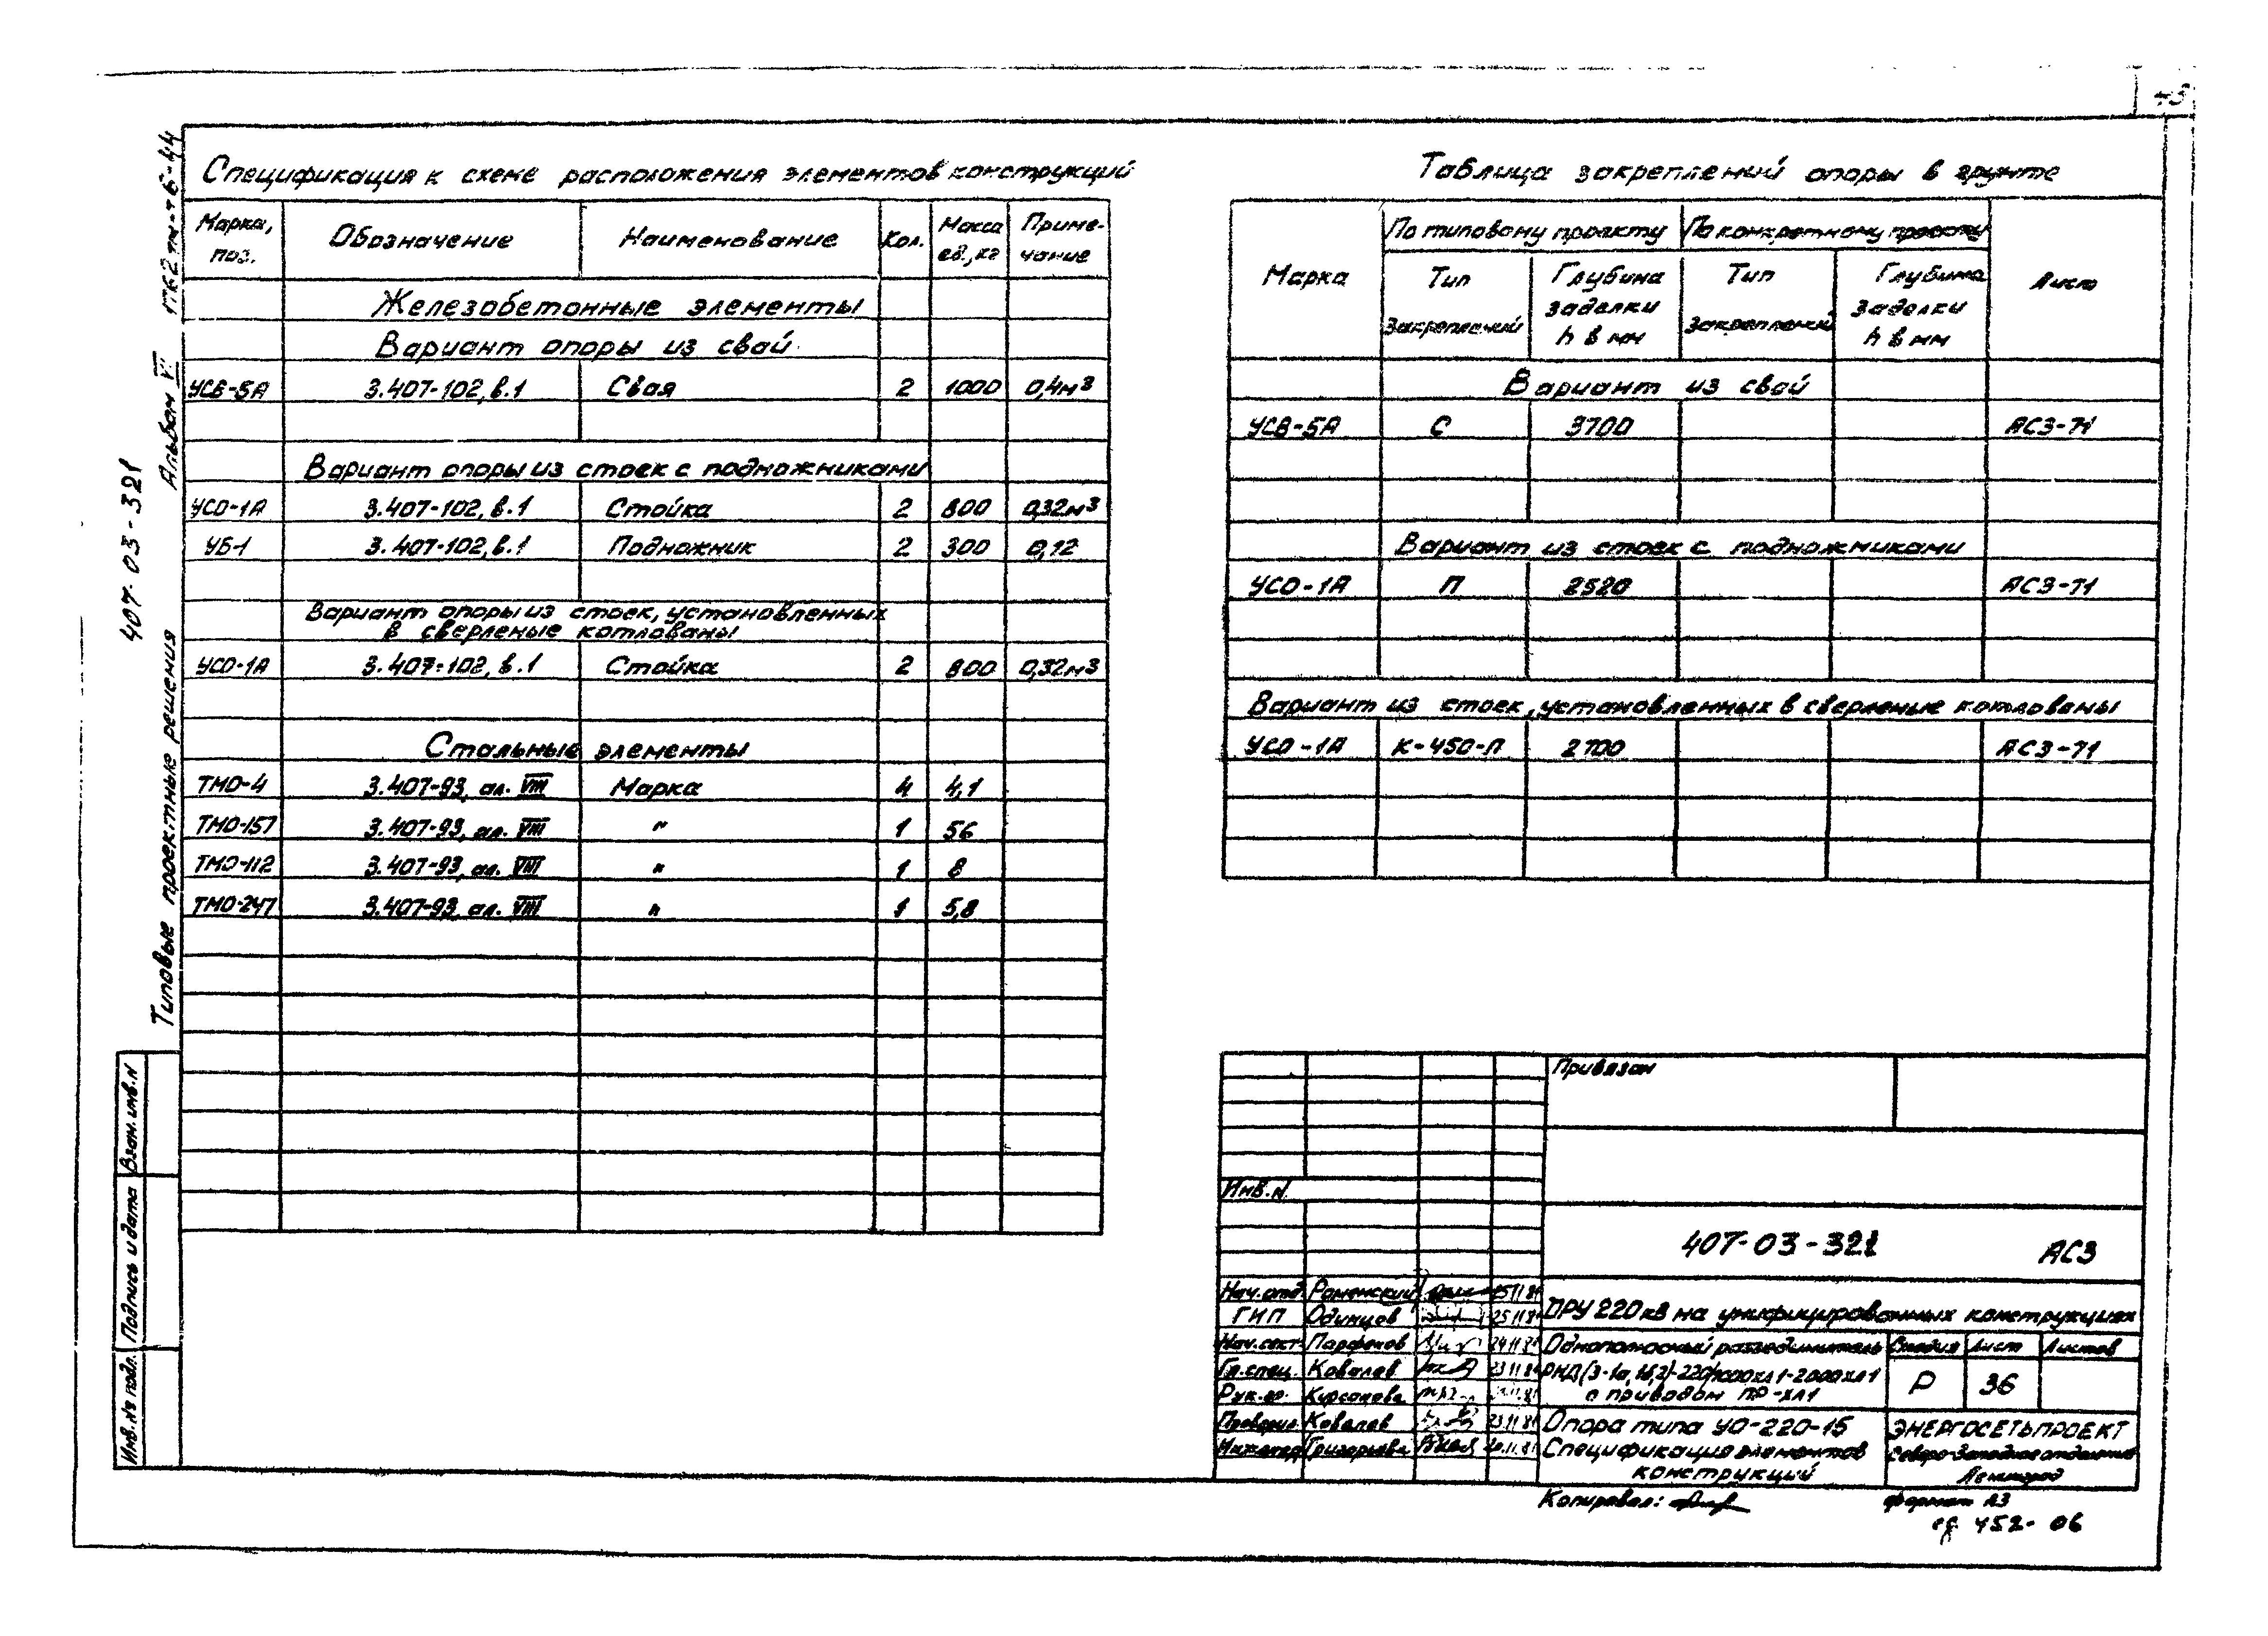 43
Спецификация к схеме расположения элементов конструкций
Марка, поз. Обозначение Наименование Кол. Масса ед., кг Приме-чание
Железобетонные элементы
Вариант опоры из свай
УСВ-5А 3.407-102, в.1 Свая 2 1000 0,4м³
Вариант опоры из стоек с подножниками
УСО-1А 3.407-102, в.1 Стойка 2 800 0,32м³
УБ-1 3.407-102, в.1 Подножник 2 300 0,12
Вариант опоры из стоек, установленных
в сверленые котлованы
УСО-1А 3.407-102, в.1 Стойка 2 800 0,32м³
Стальные элементы
ТМО-4 3.407-93, ал. VIII Марка 4 4,1
ТМО-157 3.407-93, ал. VIII " 1 56
ТМО-112 3.407-93, ал. VIII " 1 8
ТМО-247 3.407-93, ал. VIII " 1 5,8
Таблица закреплений опоры в грунте
Марка По типовому проекту По конкретному проекту Лист
Тип закреплений Глубина заделки h в мм Тип закреплений Глубина заделки h в мм
Вариант из свай
УСВ-5А С 3700 АС3-71
Вариант из стоек с подножниками
УСО-1А П 2520 АС3-71
Вариант из стоек, установленных в сверленые котлованы
УСО-1А К-450-П 2700 АС3-71
407-03-321
Типовые проектные решения Альбом
Взам. инв. N
Подпись и дата
Инв. № подл.
Привязан
Инв. N
407-03-321 АС3
Нач. отд. Роменский
ГИП Одинцов 25.11.81
Нач. сект. Парфенов 24.11.81
Гл. спец. Ковалев 23.11.81
Рук. гр. Кирсанова
Проверил Ковалев 23.11.81
Инженер Григорьева 20.11.81
ОРУ 220 кВ на унифицированных конструкциях
Однополюсный разъединитель
РНД(3-1а, 1б, 2)-220/1000хл1-2000хл1
с приводом ПР-хл1
Стадия Лист Листов
Р 36
Опора типа УО-220-15
Спецификация элементов
конструкций
ЭНЕРГОСЕТЬПРОЕКТ
Северо-Западное отделение
Ленинград
Копировал:
формат А3
452-06